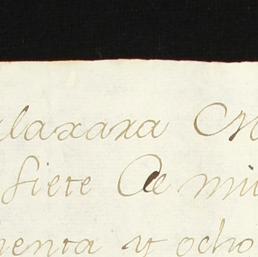 alaxara M
siete de mi
nenta y ocho